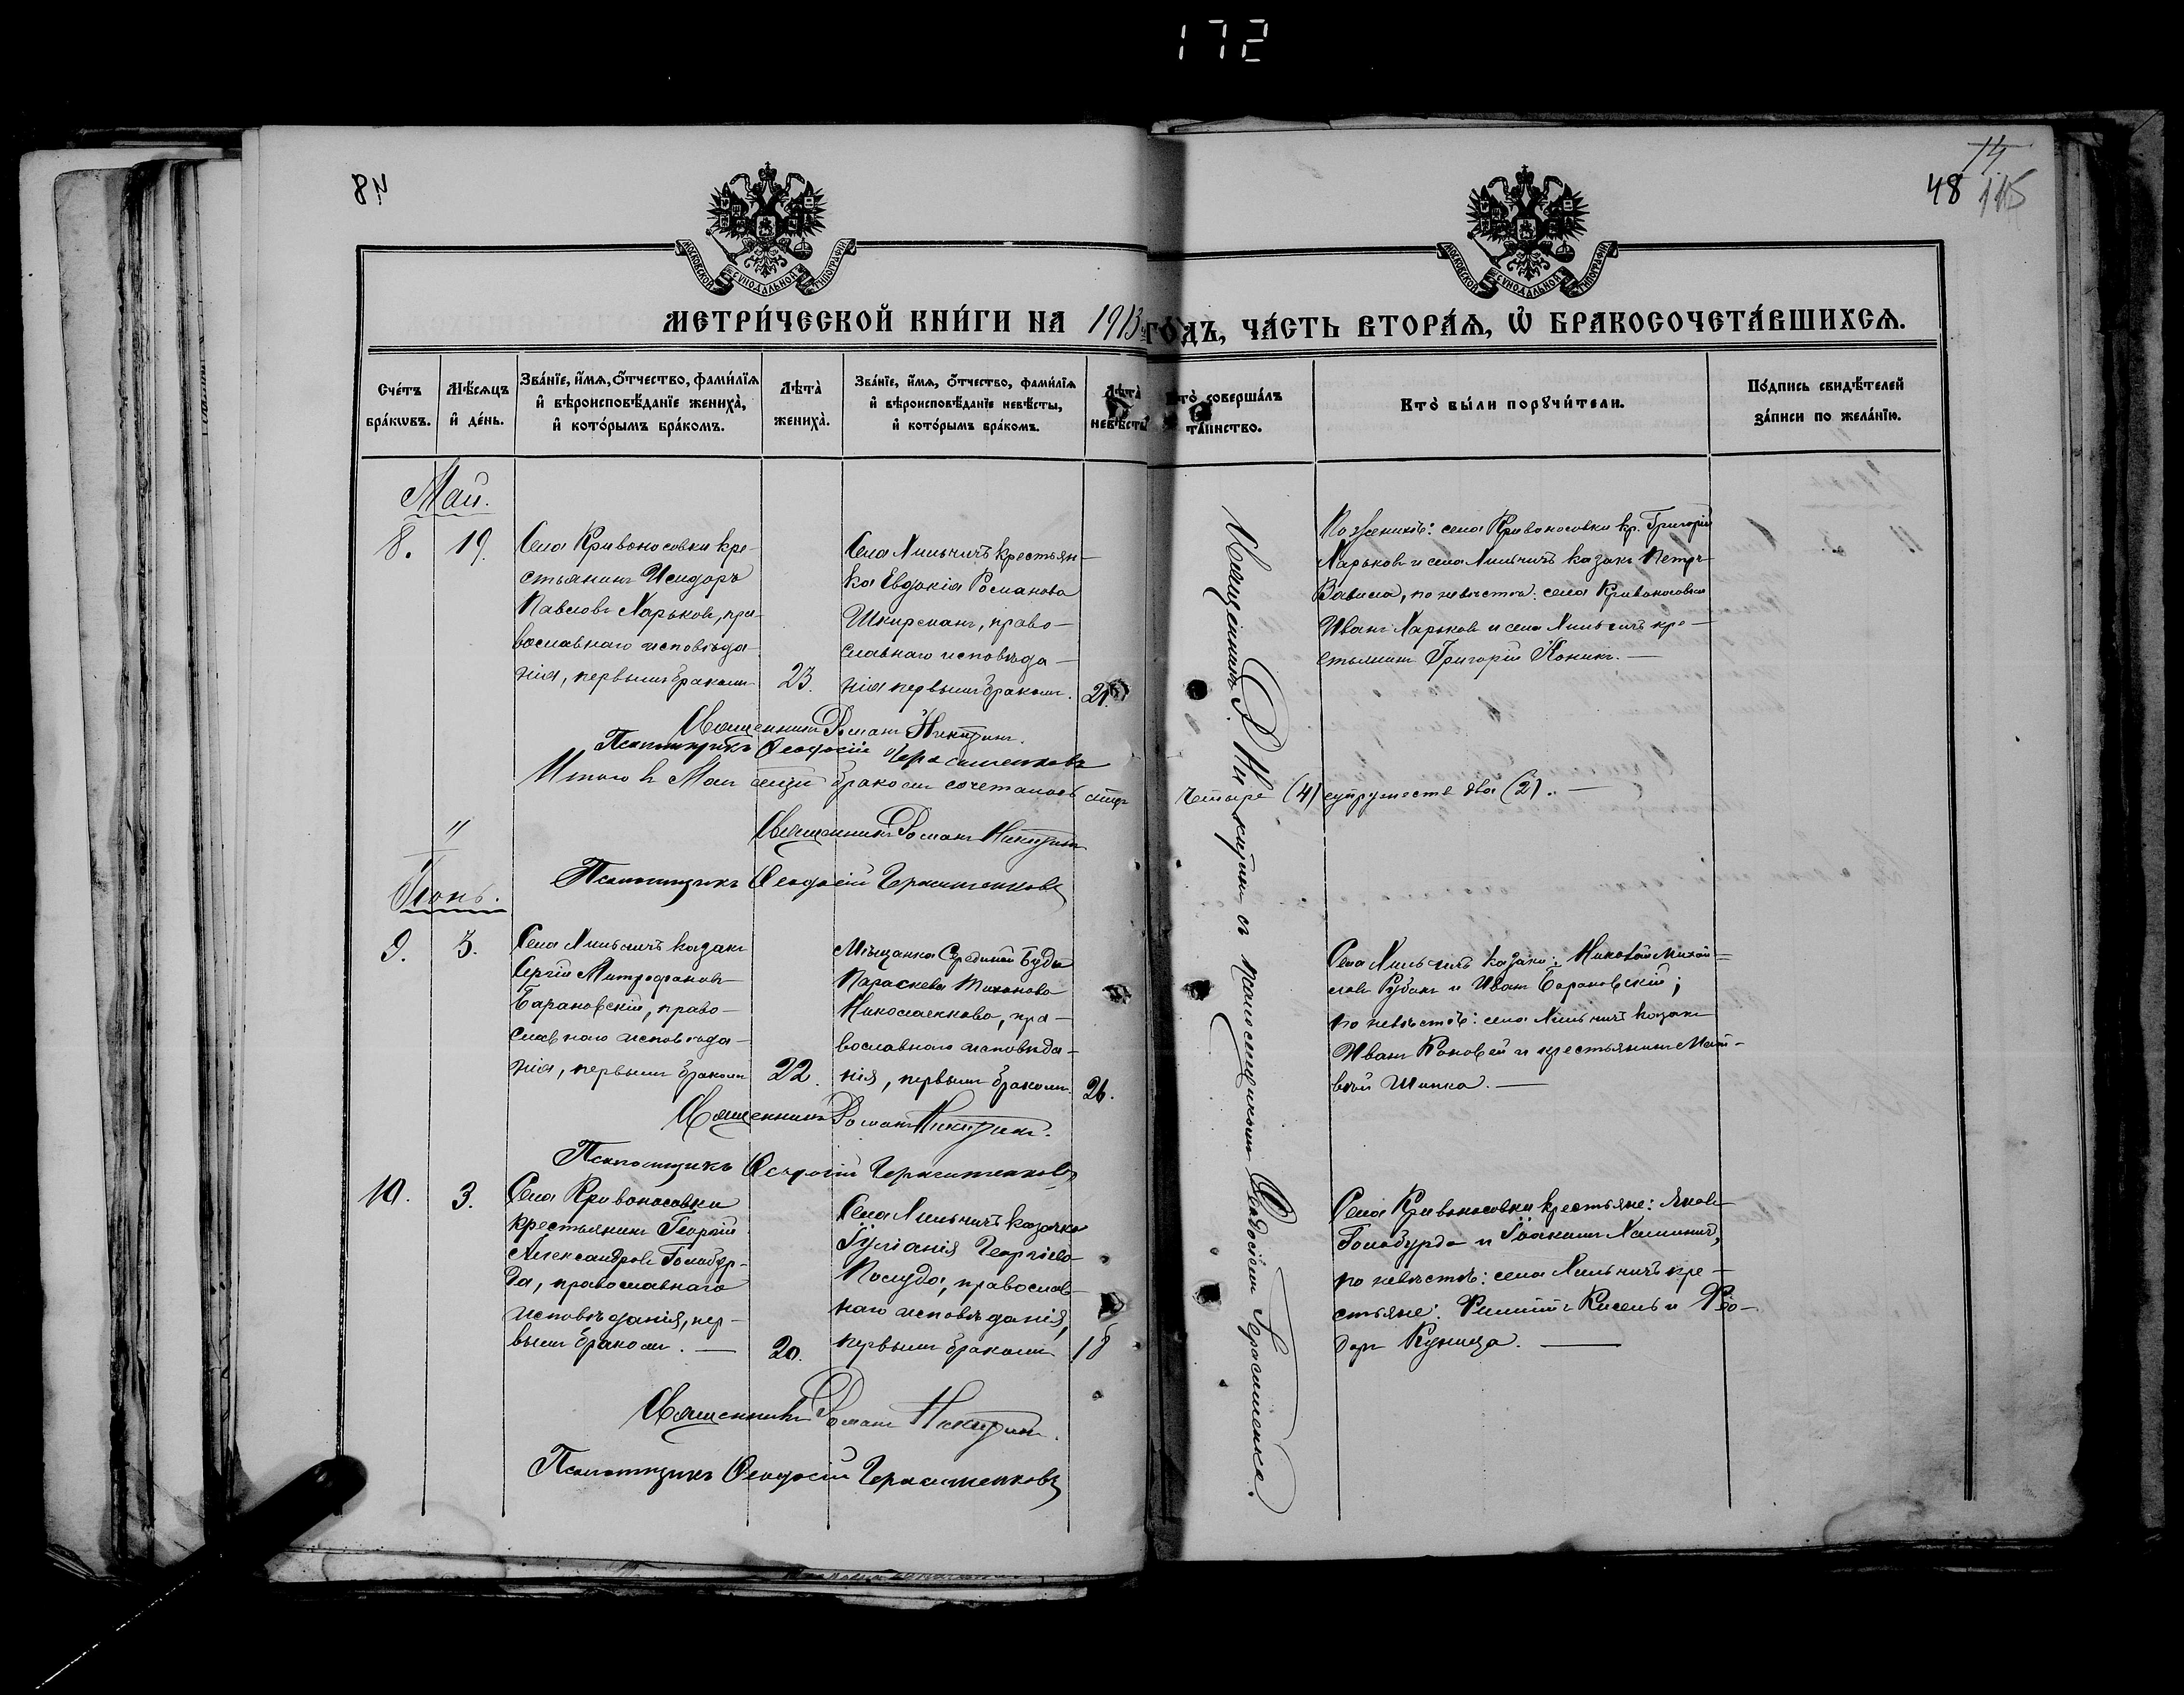 172
48
115
МОСКОВСКОЙ СѴНОДАЛЬНОЙ ТИПОГРАФІИ
МОСКОВСКОЙ СѴНОДАЛЬНОЙ ТИПОГРАФІИ
МЕТРИ́ЧЕСКОЙ КНИ́ГИ НА 1913
ГО́ДЪ, ЧА́СТЬ ВТОРА́Ѧ, Ѽ БРАКОСОЧЕТА́ВШИХСѦ.
Сче́тъ
бра́кѡвъ.
Мѣ́сѧцъ
и҆ де́нь.
Зва́нїе, и҆́мѧ, ѻ҆́тчество, фами́лїѧ
и҆ вѣроисповѣ́данїе жениха̀,
и҆ кото́рымъ бра́комъ.
Лѣта̀
жениха̀.
Зва́нїе, и҆́мѧ, ѻ҆́тчество, фами́лїѧ
и҆ вѣроисповѣ́данїе невѣ́сты,
и҆ кото́рымъ бра́комъ.
Лѣта̀
невѣ́сты
Кто̀ соверша́лъ
та́инство.
Кто̀ бы́ли порꙋчи́тели.
По́дпись свидѣ́телей
за́писи по жела́нїю.
Май.
8.
19.
Села Кривоносовки кре-
стьянинъ Исидоръ
Павловъ Харьковъ, пра-
вославнаго исповѣда-
нія, первымъ бракомъ
23.
Села Хильчичъ крестьян-
ка Евдокія Романова
Шкирманъ, право-
славнаго исповѣда-
нія первымъ бракомъ.
21.
По женихѣ: села Кривоносовки кр. Григорій
Харьковъ и села Хильчичъ казакъ Петръ
по невѣстѣ: села Кривоносовки
Иванъ Харьковъ и села Хильчичъ кре-
стьянинъ Григорій Коникъ.
Священникъ Романъ Никитинъ.
Псаломщикъ Ѳеодосій Герасименковъ
Итого въ Маѣ бракомъ сочеталось
четыре (4) супружествъ два (2).
Священникъ Романъ Никитинъ
Псаломщикъ Ѳеодосій Герасименковъ
Священникъ Р. Никитинъ съ псаломщикомъ Ѳеодосіемъ Герасименко.
Іюнь.
9.
3.
Села Хильчичъ казакъ
Сергій Митрофановъ
Барановскій, право-
славнаго исповѣда-
нія, первымъ бракомъ
22.
Мѣщанка Срединой Буды
Параскева Тихонова
Николаенкова, пра-
вославнаго исповѣда-
нія, первымъ бракомъ.
26.
Села Хильчичъ казаки: Николай Михай-
ловъ Рубанъ и Иванъ Барановскій;
по невѣстѣ: села Хильчичъ казакъ
Иванъ Коновей и крестьянинъ Мат-
вѣй Шипка.
Священникъ Романъ Никитинъ.
Псаломщикъ Ѳеодосій Герасименковъ
10.
3.
Села Кривоносовки
крестьянинъ Георгій
Александровъ Голобур-
да, православнаго
исповѣданія, пер-
вымъ бракомъ.
20.
Села Хильчичъ казачка
Іуліанія Георгіева
Полуда, православ-
наго исповѣданія,
первымъ бракомъ
18
Села Кривоносовки крестьяне: Яковъ
Голобурда и Іоакимъ
по невѣстѣ: села Хильчичъ кре-
стьяне: Филиппъ Кисель и Ѳео-
доръ Куница.
Священникъ Романъ Никитинъ.
Псаломщикъ Ѳеодосій Герасименковъ